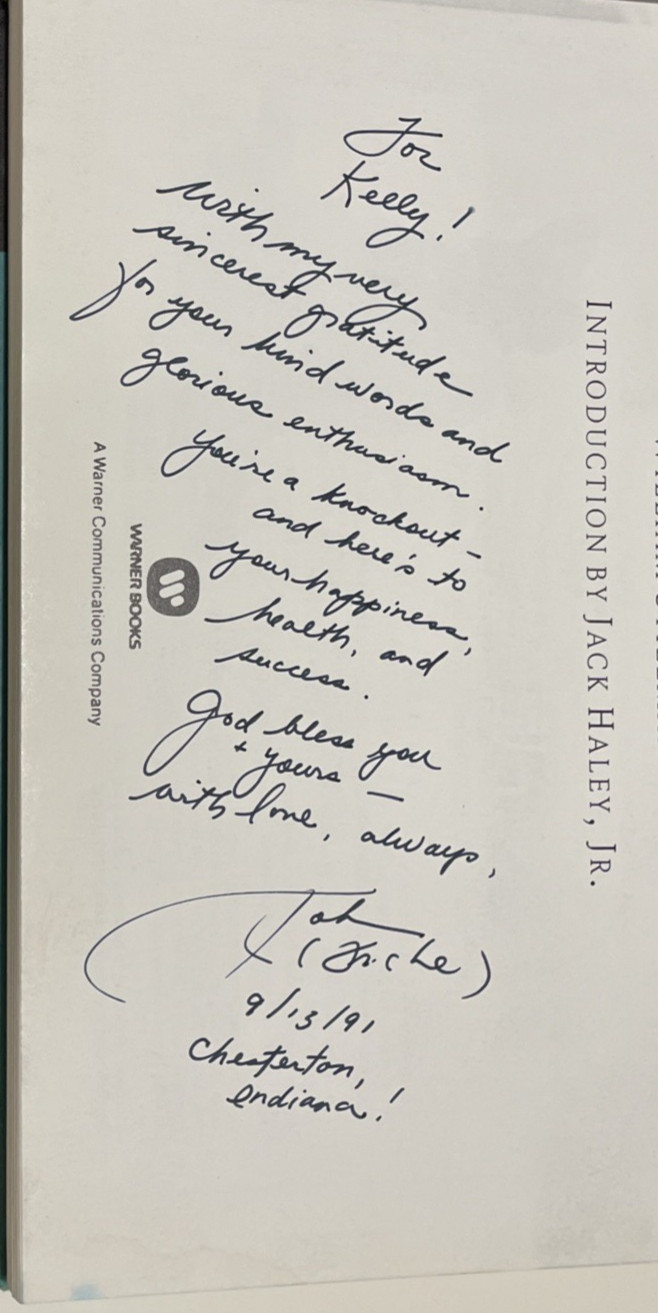 For
Kelly!
With my very
sincerest gratitude
for your kind words and
glorious enthusiasm.
You're a knockout –
and here's to
your happiness,
health, and
success.
God bless you
+ yours —
with love, always,
John
(Fricke)
9/13/91
Chesterton,
Indiana!
INTRODUCTION BY JACK HALEY, JR.
WARNER BOOKS
A Warner Communications Company